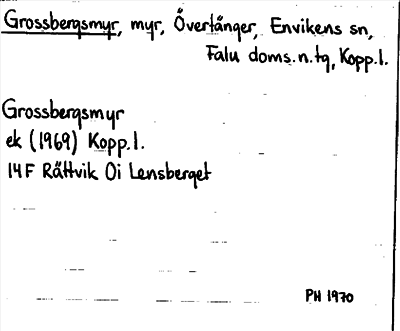 Grossbergsmyr, myr, Övertänger, Envikens sn,
Falu doms.n.tg, Kopp.l.
Grossbergsmyr
ek (1969) Kopp.l.
14F Rättvik Oi Lensberget
PH 1970